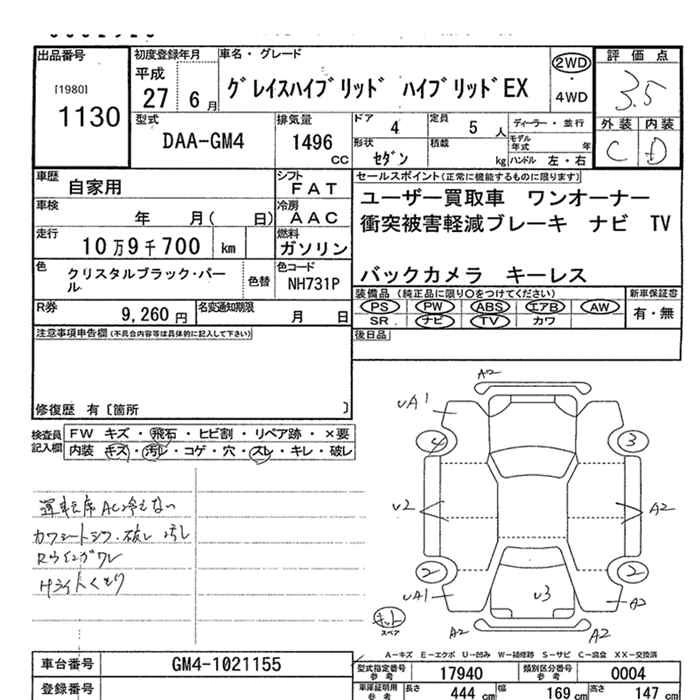 出品番号
[1980]
1130
初度登録年月
平成
27 6 月
車名・グレード
グレイスハイブリッド ハイブリッドEX
2WD
・
4WD
評価点
3.5
外装 内装
C D
型式
DAA-GM4
排気量
1496
CC
ドア
4
定員
5 人
ディーラー・並行
形状
セダン
積載
kg
モデル年式 年
ハンドル 左・右
車歴
自家用
シフト
FAT
車検
年 月( 日)
冷房
AAC
走行
10万9千700 km
燃料
ガソリン
色
クリスタルブラック・パール
色替
色コード
NH731P
R券
9,260 円
名変通知期限
月 日
セールスポイント(正常に機能するものに限ります)
ユーザー買取車 ワンオーナー
衝突被害軽減ブレーキ ナビ TV
バックカメラ キーレス
装備品(純正品に限り○をつけてください)
PS PW ABS エアB AW
SR ナビ TV カワ
新車保証書
有・無
後日品
注意事項申告欄(不具合内容等は具体的に記入して下さい)
修復歴 有〔箇所 〕
検査員記入欄
FW キズ・飛石・ヒビ割・リペア跡・×要
内装 キズ・汚レ・コゲ・穴・スレ・キレ・破レ
運転席AC冷えない
カワシートシワ・破レ 汚レ
Rウインガワレ
Hライトくもり
A2
UA1
4
3
U2
A2
2
2
UA1
U3
A2
キット
スペア
A2
A2
A-キズ E-エクボ U-凹み W-補修跡 S-サビ C-腐食 XX-交換済
車台番号
GM4-1021155
型式指定番号
参考
17940
類別区分番号
参考
0004
登録番号
車庫証明用
参考
長さ 444 cm 幅 169 cm 高さ 147 cm